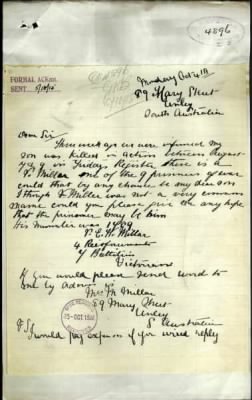 4896
Monday Oct 4th
FORMAL ACKGD.
SENT 5/10/15
59 Mary Street
Unley
South Australia
Dear Sir
Three weeks ago we were informed my
son was killed in action between August
7th & 9 on Fridays Register there is a
Millar one of the 9 prisoners of war
could that by any chance be my dear son
Millar was not a very common
name could you please give me any hope
that the prisoner may be him
His number was
Millar
4 Reinforcements
7 Battalion
Victorian
If you would please send word to
me by Adam St
Mrs M Millar
59 Mary Street
Unley
S Australia
5-OCT 1915
P S I would pay expenses if you wired reply